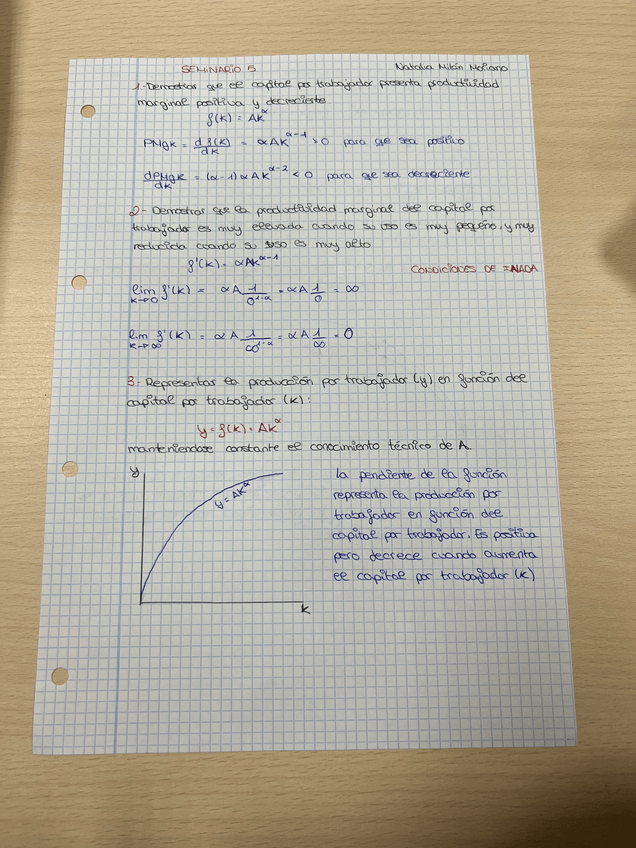 SEMINARIO 5
Natalia Milán Moriano
1- Demostrar que el capital por trabajador presenta productividad
marginal positiva y decreciente
f(k) = Ak^α
PMgk = df(k)/dk = αAk^(α-1) > 0 para que sea positivo
dPMgk/dk = (α-1)αAk^(α-2) < 0 para que sea decreciente
2- Demostrar que la productividad marginal del capital por
trabajador es muy elevada cuando su uso es muy pequeño, y muy
reducida cuando su uso es muy alto
f'(k) = αAk^(α-1)
CONDICIONES DE INADA
lim k→0 f'(k) = αA 1/0^(1-α) = αA 1/0 = ∞
lim k→∞ f'(k) = αA 1/∞^(1-α) = αA 1/∞ = 0
3- Representar la producción por trabajador (y) en función del
capital por trabajador (k):
y = f(k) = Ak^α
manteniendose constante el conocimiento técnico de A.
y
y = AK^α
k
La pendiente de la función
representa la producción por
trabajador en función del
capital por trabajador. Es positiva
pero decrece cuando aumenta
el capital por trabajador (k)